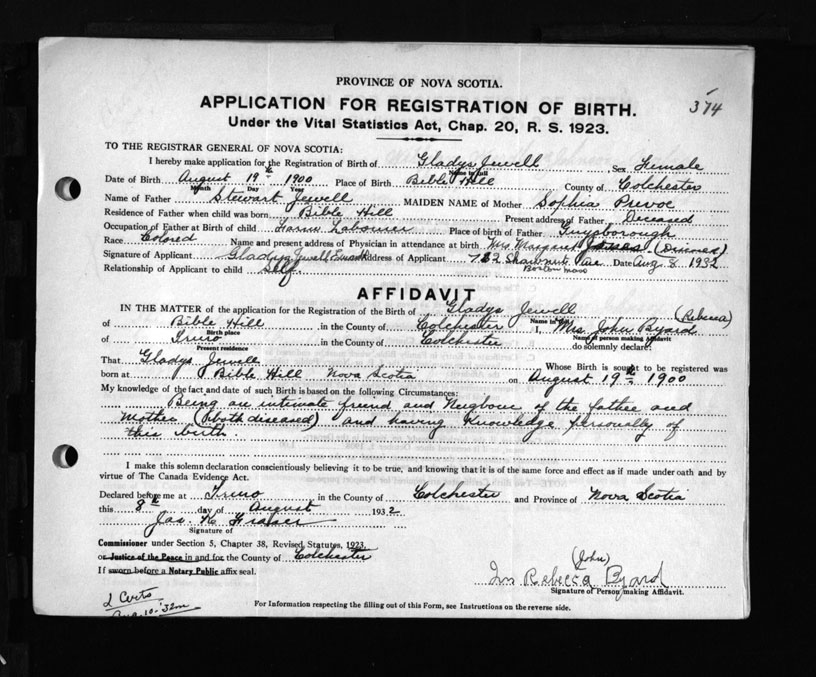 PROVINCE OF NOVA SCOTIA.
APPLICATION FOR REGISTRATION OF BIRTH.
374
Under the Vital Statistics Act, Chap. 20, R. S. 1923.
TO THE REGISTRAR GENERAL OF NOVA SCOTIA:
I hereby make application for the Registration of Birth of Gladys Jewell Sex Female
Name in full
Date of Birth August 19th 1900 Place of Birth Bible Hill County of Colchester
Month Day Year
Name of Father Stewart Jewell MAIDEN NAME of Mother Sophia Prevoe
Residence of Father when child was born Bible Hill Present address of Father Deceased
Occupation of Father at Birth of child Farm Labourer Place of birth of Father Guysborough
Race Colored Name and present address of Physician in attendance at birth Mrs Margaret James
Signature of Applicant Gladys Jewell Address of Applicant Ave Date Aug 8 1932
Boston Mass
Relationship of Applicant to child self
AFFIDAVIT
IN THE MATTER of the application for the Registration of the Birth of Gladys Jewell
Name in full
(Rebecca)
of Bible Hill in the County of Colchester I, Mrs John Byard
Birth place Name of person making Affidavit
of Truro in the County of Colchester do solemnly declare:
Present residence
That Gladys Jewell Whose Birth is sought to be registered was
born at Bible Hill Nova Scotia on August 19th 1900
My knowledge of the fact and date of such Birth is based on the following Circumstances:
Being an intimate freind and Neigbour of the father and
Mother (Both diseased) and having Knowledge personally of
this birth
I make this solemn declaration conscientiously believing it to be true, and knowing that it is of the same force and effect as if made under oath and by
virtue of The Canada Evidence Act.
Declared before me at Truro in the County of Colchester and Province of Nova Scotia
this 8th day of August 1932
Jas. H Fraser
Signature of
Commissioner under Section 5, Chapter 38, Revised Statutes, 1923.
or Justice of the Peace in and for the County of Colchester
If sworn before a Notary Public affix seal.
(John)
Mrs Rebecca Byard
Signature of Person making Affidavit.
2 Certs
Aug. 10 '32
For Information respecting the filling out of this Form, see Instructions on the reverse side.